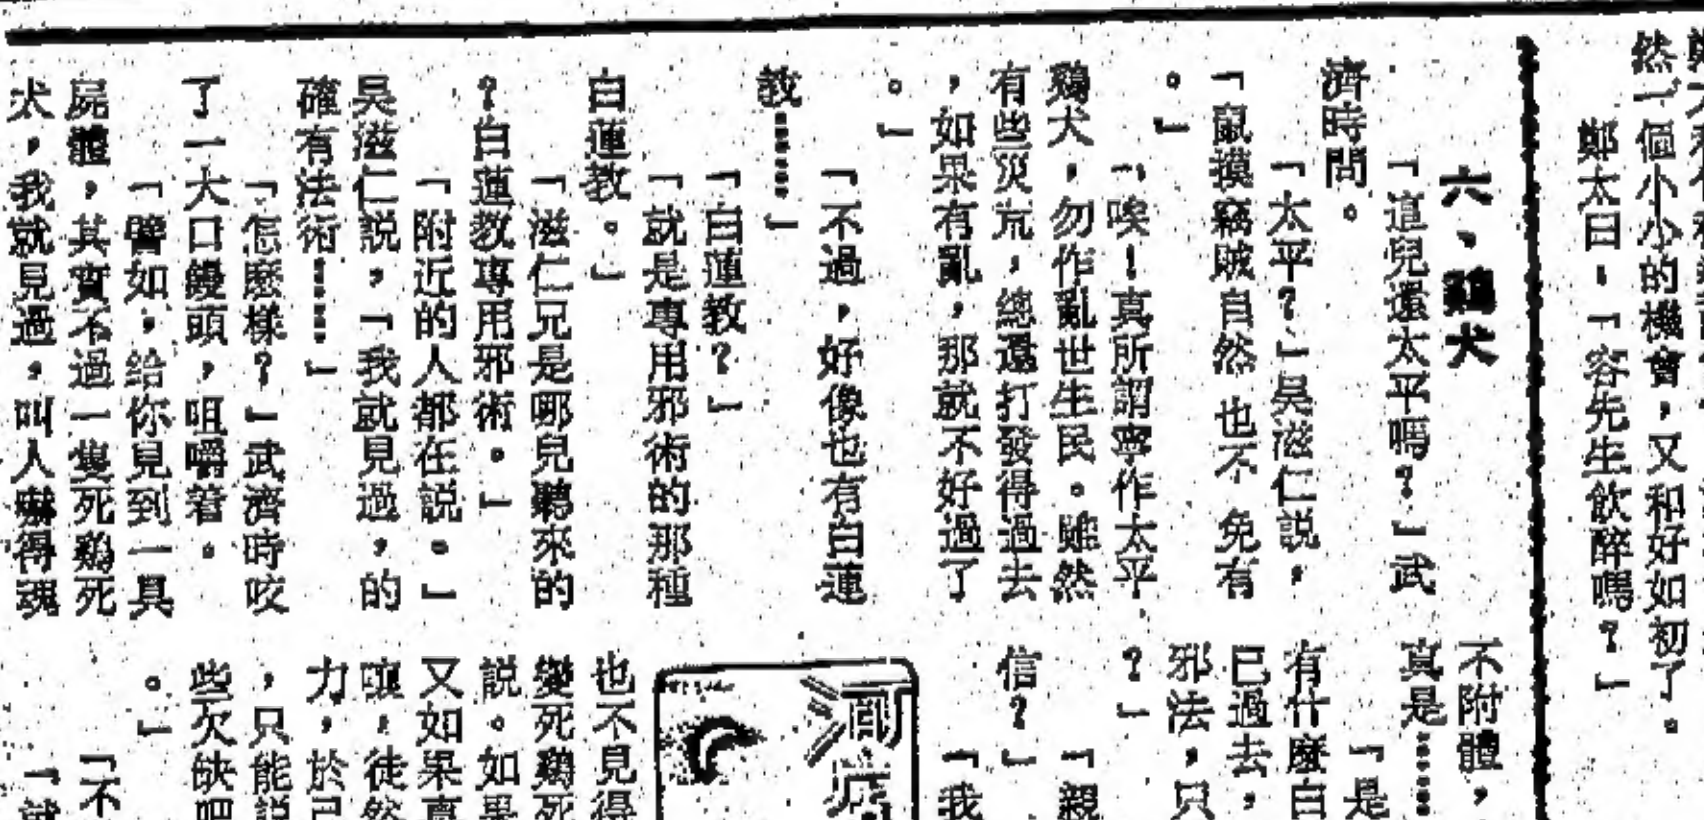 然一個小小的機會，又和好如初了。
鄭太曰：「容先生飲醉嗎？」
六、鷄犬
「這兒還太平嗎？」武
濟時問。
「太平？」吴滋仁説，
「鼠摸竊賊自然也不免有
。」
「唉！真所謂寧作太平
鷄犬，勿作亂世生民。雖然
有些災荒，總還打發得過去
，如果有亂，那就不好過了
。」
「不過，好像也有白蓮
教……」
「白蓮教？」
「就是專用邪術的那種
白蓮教。」
「滋仁兄是哪兒聽來的
？白蓮教專用邪術。」
「附近的人都在説。」
吴滋仁説，「我就見過，的
確有法術……」
「怎麽樣？」武濟時咬
了一大口饅頭，咀嚼着。
「譬如，給你見到一具
屍體，其實不過一隻死鷄死
犬，我就見過，叫人嚇得魂
不附體，
真是……
「是
有什麽白
已過去，
邪法，只
？」
「親
信？」
「我
也不見得
變死鷄死
説。如果
又如果真
壤，徒然
力，於己
，只能説
些欠缺吧
。」
「不
「就